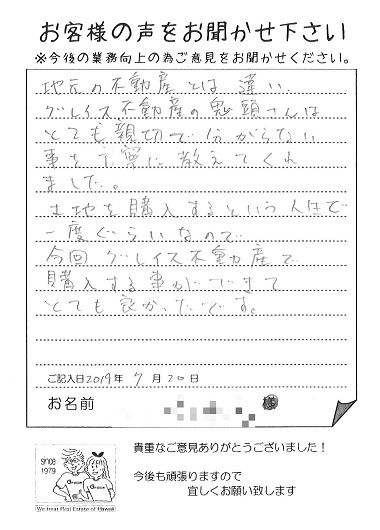 お客様の声をお聞かせ下さい
※今後の業務向上の為ご意見をお聞かせください。
地元の不動産とは 違い
グレイス不動産の鬼頭さんは
とても親切で分からない
事を丁寧に教えてくれ
ました。
土地を購入するという人生で
一度ぐらいなので
今回 グレイス不動産で
購入する事ができて
とても良かったです。
ご記入日2019年 7月20日
お名前 様
since
1979
Grace Grace
We treat Real Estate of Hawaii
貴重なご意見ありがとうございました！
今後も頑張りますので
宜しくお願い致します